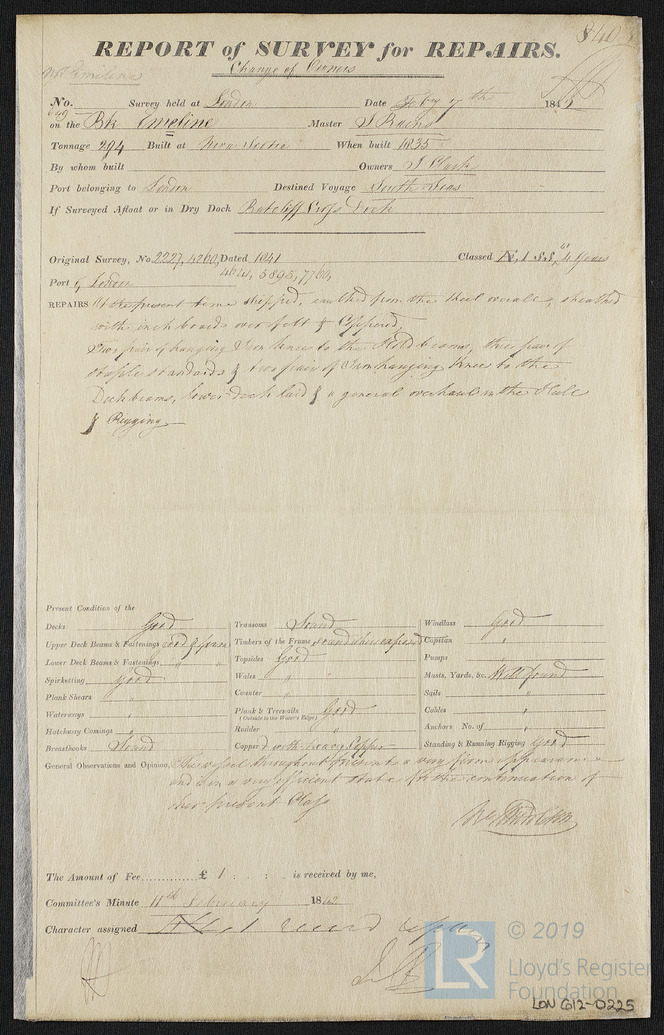 REPORT of SURVEY for REPAIRS.
Change of Owners
not Emilena
No. 649 Survey held at London Date Feby 7th 1842
on the Bk Emeline Master S Rains
Tonnage 294 Built at Nova Scotia When built 1835
By whom built Owners S Clark
Port belonging to London Destined Voyage South Seas
If Surveyed Afloat or in Dry Dock Ratcliff Cross Dock
Original Survey, No. 2227, 4260, Dated 1841 Classed 4 Years
4644, 5895, 7760,
Port of London
REPAIRS At the present time stripped, caulked from the Keel overall, sheathed
with inch boards over felt & Coppered,
Two pair of hanging Iron knees to the Hold beams, three pair of
staple standards & two pair of Iron hanging Knees to the
Deck beams, lower deck laid & a general overhaul in the Hull
& Rigging
Present Condition of the
Decks Good
Upper Deck Beams & Fastenings Good & Iron
Lower Deck Beams & Fastenings " "
Spirketting good
Plank Shears "
Waterways "
Hatchway Comings "
Breasthooks Sound
Transoms Sound
Timbers of the Frame sound where exposed
Topsides Good
Wales " "
Counter "
Plank & Treenails Good
(Outside to the Water's Edge)
Rudder "
Copper'd with heavy Copper
Windlass Good
Capstan "
Pumps "
Masts, Yards, &c. Well found
Sails "
Cables "
Anchors No. of "
Standing & Running Rigging Good
General Observations and Opinion, This vessel throughout presents a very firm appearance
and is in a very efficient state for the continuation of
her present Class
The Amount of Fee £ 1 : : is received by me,
Committee's Minute 11th February 1842
Character assigned record repairs
© 2019
LR
Lloyd's Register
Foundation
LON 612-0225